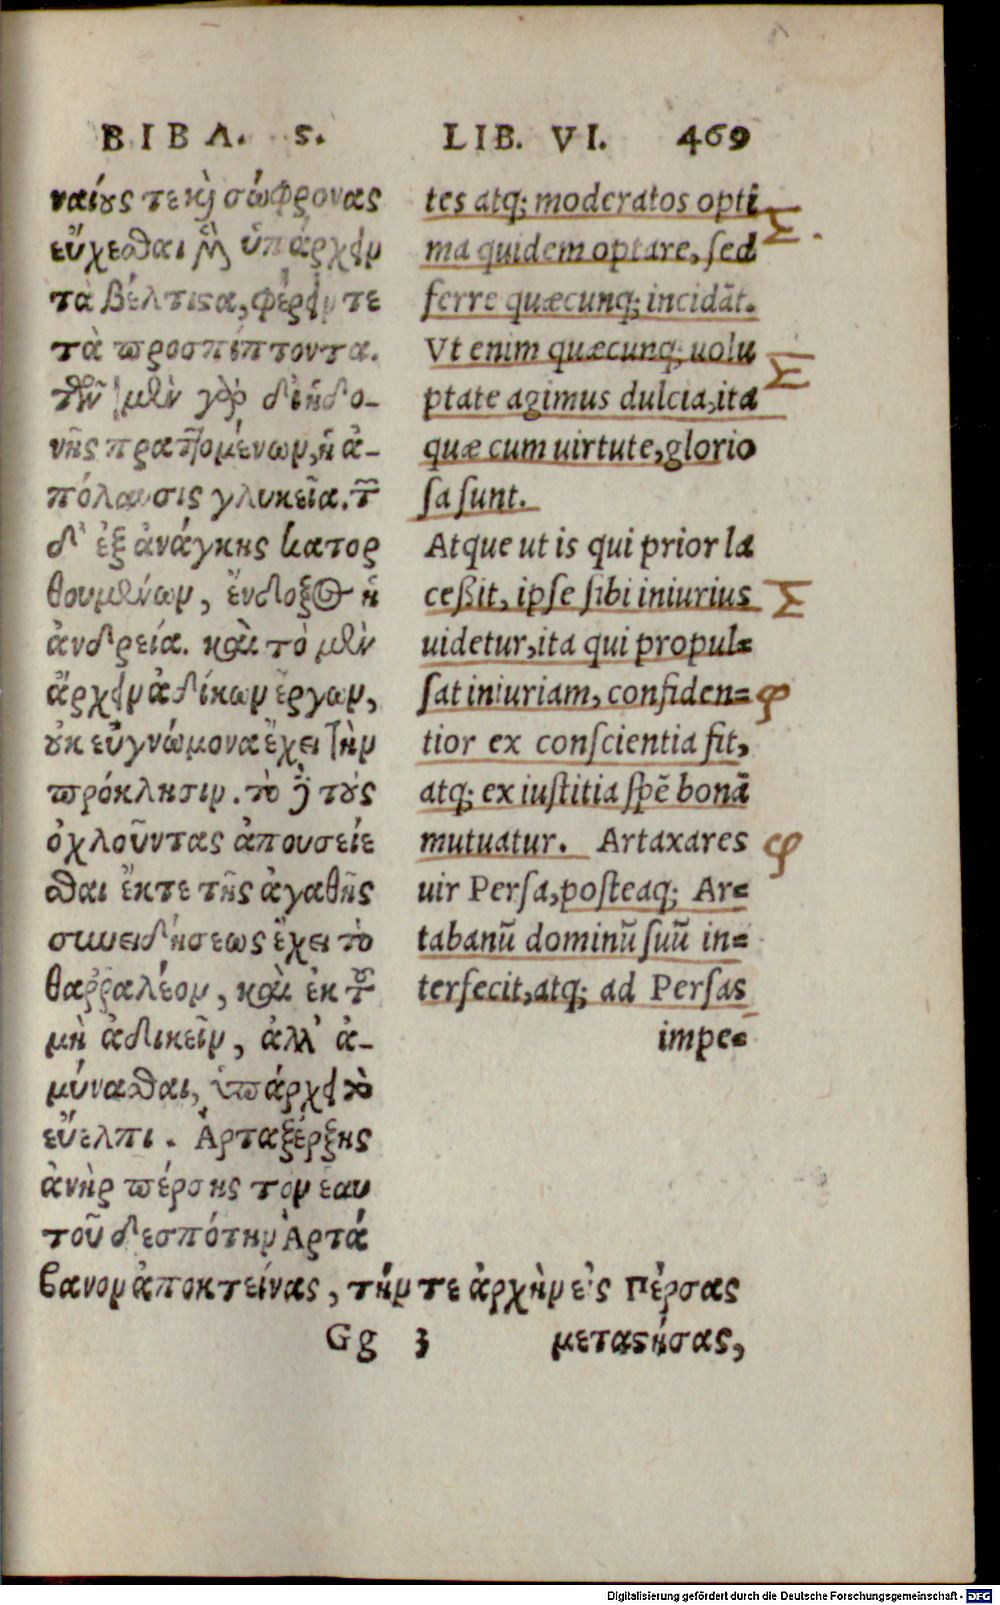 ΒΙΒΛ. ς.
ναίους τε καὶ σώφρονας
εὔχεσθαι μὲν ὑπάρχειν
τὰ βέλτιστα, φέρειν τε
τὰ προσπίπτοντα.
τῶν μὲν γὰρ δι' ἡδο-
νῆς πραττομένων, ἡ ἀ-
πόλαυσις γλυκεῖα. τῶν
δ' ἐξ ἀνάγκης κατορ
θουμένων, ἔνδοξος ἡ
ἀνδρεία. καὶ τὸ μὲν
ἄρχειν ἀδίκων ἔργων,
οὐκ εὐγνώμονα ἔχει τὴν
πρόκλησιν. τὸ δὲ τοὺς
ὀχλοῦντας ἀπουσείε
σθαι ἔκ τε τῆς ἀγαθῆς
συνειδήσεως ἔχει τὸ
θαῤῥαλέον, καὶ ἐκ τοῦ
μὴ ἀδικεῖν, ἀλλ' ἀ-
μύνασθαι, ὑπάρχει τὸ
εὔελπι. Ἀρταξέρξης
ἀνὴρ πέρσης τὸν ἑαυ
τοῦ δεσπότην Ἀρτά
βανον ἀποκτείνας, τήν τε ἀρχὴν εἰς Πέρσας
LIB. VI. 469
tes atq; moderatos opti
ma quidem optare, ſed
ferre quæcunq; incidāt.
Vt enim quæcunq; uolu
ptate agimus dulcia, ita
quæ cum uirtute, glorio
ſa ſunt.
Atque ut is qui prior la
ceßit, ipſe ſibi iniurius
uidetur, ita qui propul=
ſat iniuriam, confiden=
tior ex conſcientia fit,
atq; ex iuſtitia ſpē bonā
mutuatur. Artaxares
uir Perſa, poſteaq; Ar=
tabanū dominū ſuū in=
terfecit, atq; ad Perſas
impe=
Gg 3 μεταστήσας,
Σ.
Σ
Σ
φ
φ
Digitalisierung gefördert durch die Deutsche Forschungsgemeinschaft - DFG